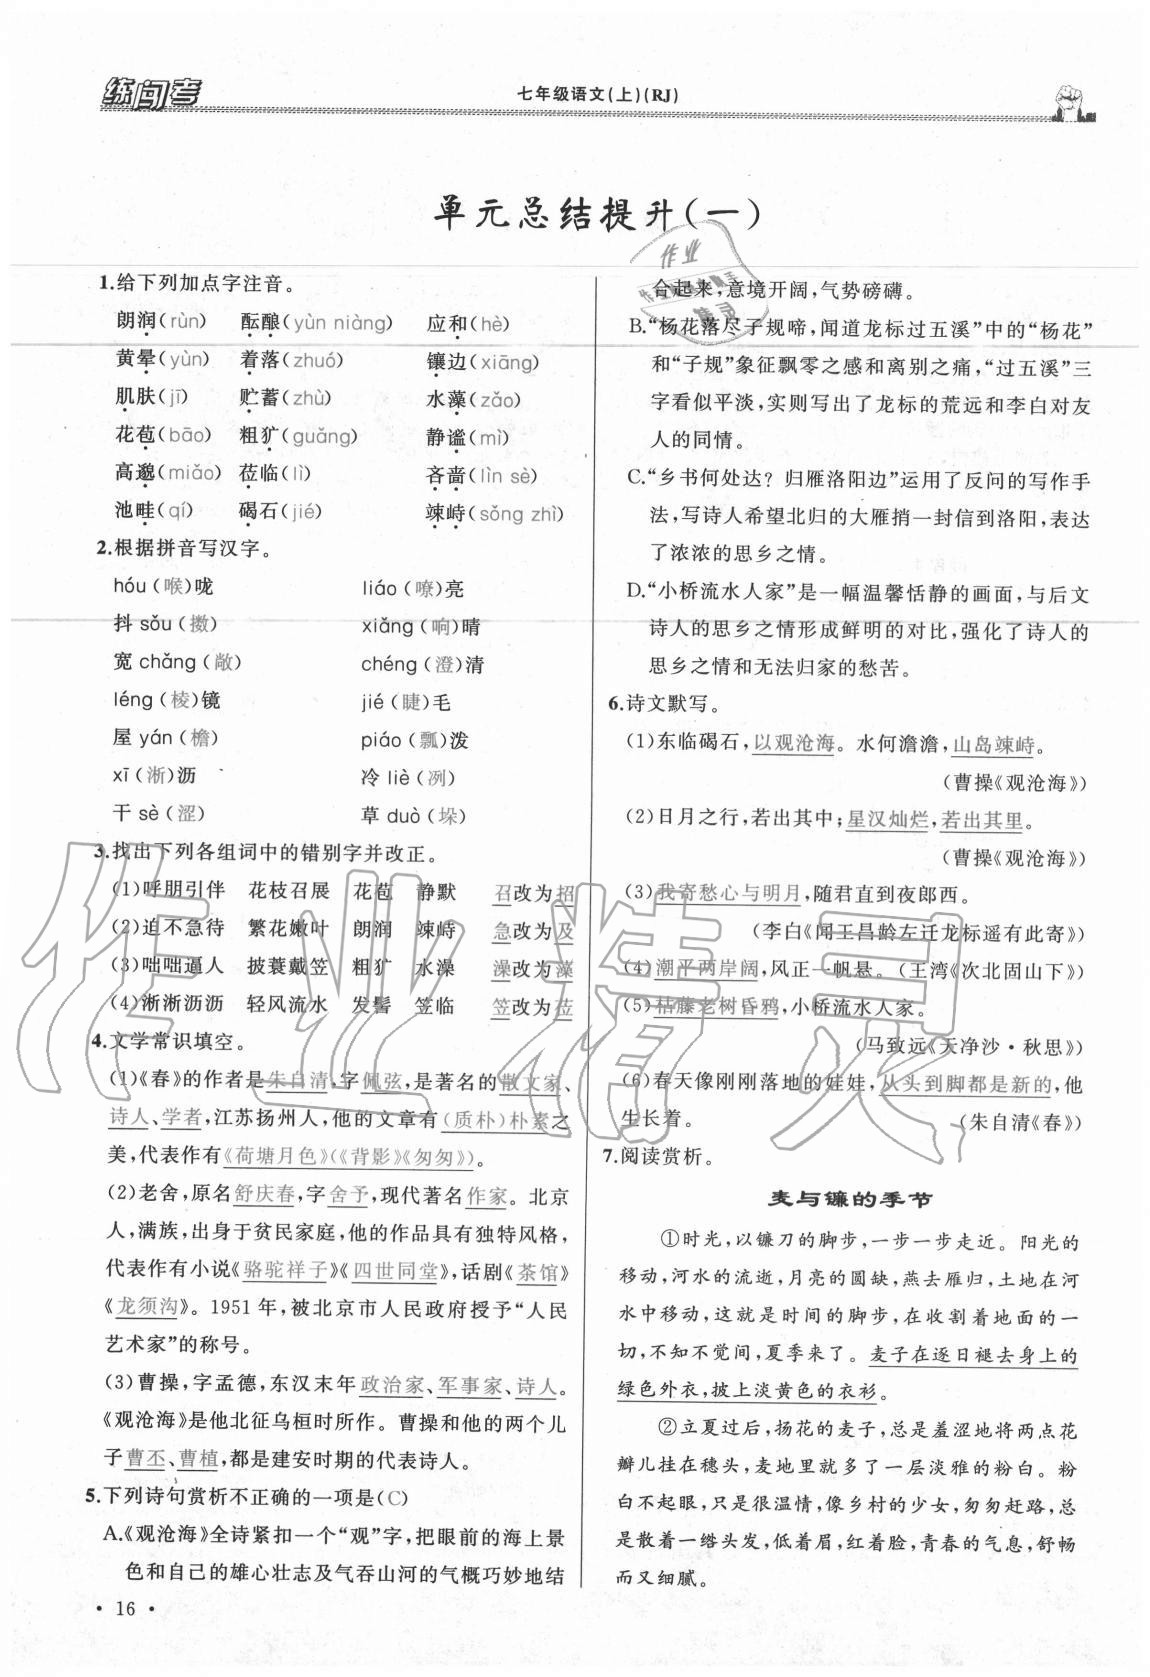 练闯考
七年级语文(上)(RJ)
单元总结提升(一)
1.给下列加点字注音。
朗润(rùn) 酝酿(yùn niàng) 应和(hè)
黄晕(yùn) 着落(zhuó) 镶边(xiāng)
肌肤(jī) 贮蓄(zhù) 水藻(zǎo)
花苞(bāo) 粗犷(guǎng) 静谧(mì)
高邈(miǎo) 莅临(lì) 吝啬(lìn sè)
池畦(qí) 碣石(jié) 竦峙(sǒng zhì)
2.根据拼音写汉字。
hóu(喉)咙 liáo(嘹)亮
抖 sǒu(擞) xiǎng(响)晴
宽 chǎng(敞) chéng(澄)清
léng(棱)镜 jié(睫)毛
屋 yán(檐) piáo(瓢)泼
xī(淅)沥 冷 liè(冽)
干 sè(涩) 草 duò(垛)
3.找出下列各组词中的错别字并改正。
(1)呼朋引伴 花枝召展 花苞 静默 召改为招
(2)迫不急待 繁花嫩叶 朗润 竦峙 急改为及
(3)咄咄逼人 披蓑戴笠 粗犷 水澡 澡改为藻
(4)淅淅沥沥 轻风流水 发髻 笠临 笠改为莅
4.文学常识填空。
(1)《春》的作者是朱自清,字佩弦,是著名的散文家、
诗人、学者,江苏扬州人,他的文章有(质朴)朴素之
美,代表作有《荷塘月色》(《背影》《匆匆》)。
(2)老舍,原名舒庆春,字舍予,现代著名作家。北京
人,满族,出身于贫民家庭,他的作品具有独特风格,
代表作有小说《骆驼祥子》《四世同堂》,话剧《茶馆》
《龙须沟》。1951年,被北京市人民政府授予“人民
艺术家”的称号。
(3)曹操,字孟德,东汉末年政治家、军事家、诗人。
《观沧海》是他北征乌桓时所作。曹操和他的两个儿
子曹丕、曹植,都是建安时期的代表诗人。
5.下列诗句赏析不正确的一项是(C)
A.《观沧海》全诗紧扣一个“观”字,把眼前的海上景
色和自己的雄心壮志及气吞山河的气概巧妙地结
合起来,意境开阔,气势磅礴。
B.“杨花落尽子规啼,闻道龙标过五溪”中的“杨花”
和“子规”象征飘零之感和离别之痛,“过五溪”三
字看似平淡,实则写出了龙标的荒远和李白对友
人的同情。
C.“乡书何处达?归雁洛阳边”运用了反问的写作手
法,写诗人希望北归的大雁捎一封信到洛阳,表达
了浓浓的思乡之情。
D.“小桥流水人家”是一幅温馨恬静的画面,与后文
诗人的思乡之情形成鲜明的对比,强化了诗人的
思乡之情和无法归家的愁苦。
6.诗文默写。
(1)东临碣石,以观沧海。水何澹澹,山岛竦峙。
(曹操《观沧海》)
(2)日月之行,若出其中;星汉灿烂,若出其里。
(曹操《观沧海》)
(3)我寄愁心与明月,随君直到夜郎西。
(李白《闻王昌龄左迁龙标遥有此寄》)
(4)潮平两岸阔,风正一帆悬。(王湾《次北固山下》)
(5)枯藤老树昏鸦,小桥流水人家。
(马致远《天净沙·秋思》)
(6)春天像刚刚落地的娃娃,从头到脚都是新的,他
生长着。 (朱自清《春》)
7.阅读赏析。
麦与镰的季节
①时光,以镰刀的脚步,一步一步走近。阳光的
移动,河水的流逝,月亮的圆缺,燕去雁归,土地在河
水中移动,这就是时间的脚步,在收割着地面的一
切,不知不觉间,夏季来了。麦子在逐日褪去身上的
绿色外衣,披上淡黄色的衣衫。
②立夏过后,扬花的麦子,总是羞涩地将两点花
瓣儿挂在穗头,麦地里就多了一层淡雅的粉白。粉
白不起眼,只是很温情,像乡村的少女,匆匆赶路,总
是散着一绺头发,低着眉,红着脸,青春的气息,舒畅
而又细腻。
·16·
作业精灵